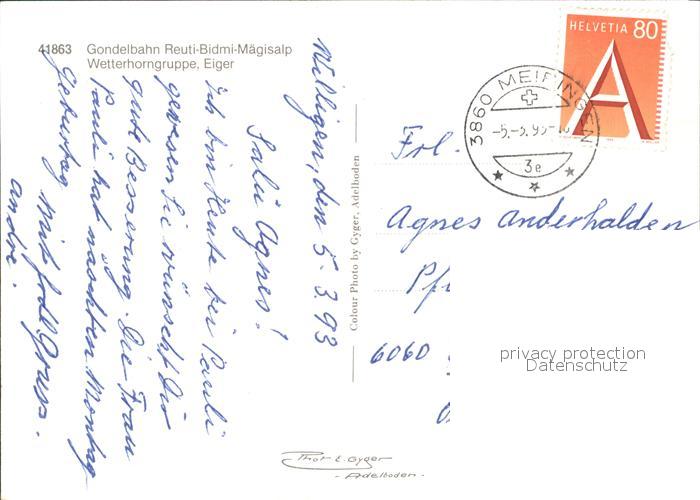 41863 Gondelbahn Reuti-Bidmi-Mägisalp
Wetterhorngruppe, Eiger
Willigen, den 5.3.93
Salü Agnes!
Ich bin Heute bei Pauli
gewesen Sie wünscht Dir
gute Besserung. Die Frau
Pauli hat nächsten Montag
Geburtag mit frdl. Gruss.
André.
Colour Photo by Gyger, Adelboden
HELVETIA 80
A
3860 MEIRINGEN
-5.-3.93-
3e
Frl.
Agnes Anderhalden
Pf
6060
privacy protection
Datenschutz
Phot. E. Gyger
- Adelboden -